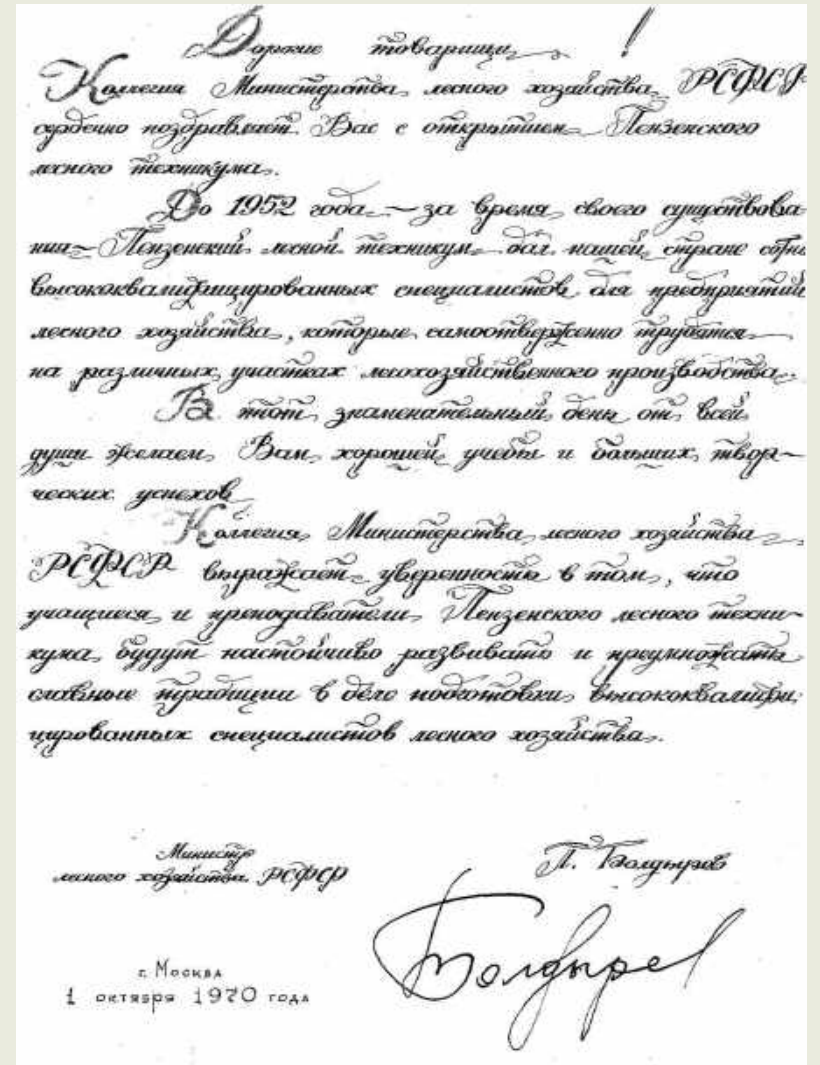 Дорогие товарищи!
Коллегия Министерства лесного хозяйства РСФСР
сердечно поздравляет Вас с открытием Пензенского
лесного техникума.
До 1952 года – за время своего существова-
ния – Пензенский лесной техникум дал нашей стране сотни
высококвалифицированных специалистов для предприятий
лесного хозяйства, которые самоотверженно трудятся
на различных участках лесохозяйственного производства.
В этот знаменательный день от всей
души желаем Вам хорошей учебы и больших твор-
ческих успехов.
Коллегия Министерства лесного хозяйства
РСФСР выражает уверенность в том, что
учащиеся и преподаватели Пензенского лесного техни-
кума будут настойчиво развивать и преумножать
славные традиции в деле подготовки высококвалифи-
цированных специалистов лесного хозяйства.
Министр
лесного хозяйства РСФСР
Л. Болдырев
Болдырев
г. Москва
1 октября 1970 года